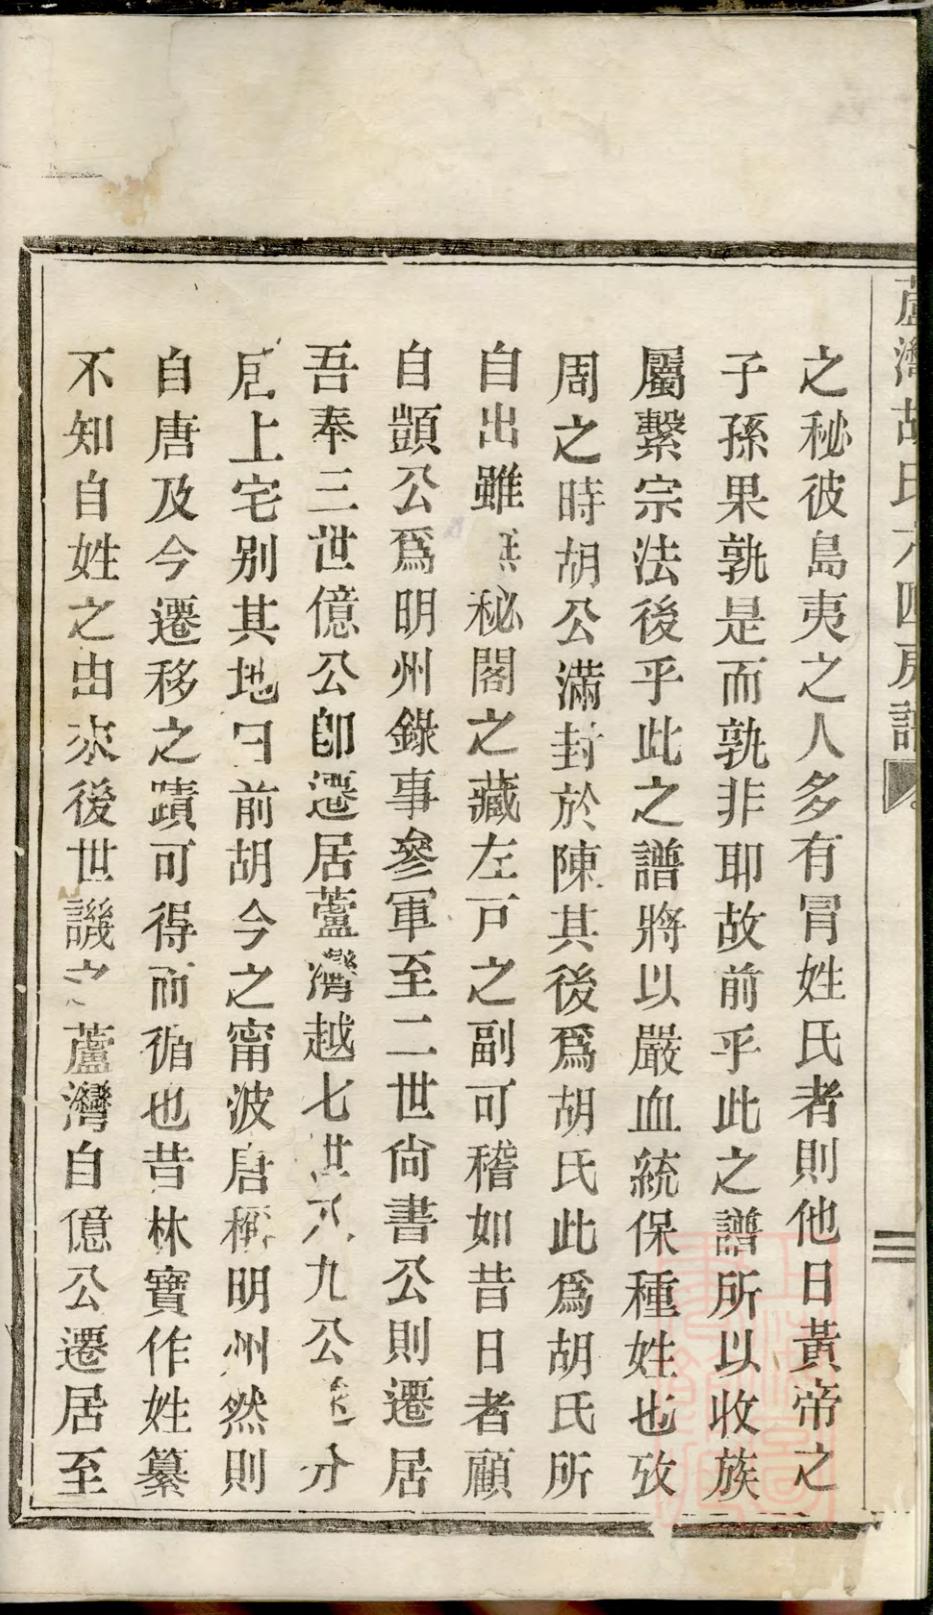 蘆灣胡氏六四房譜
之秘彼島夷之人多有冒姓氏者則他日黃帝之
子孫果孰是而孰非耶故前乎此之譜所以收族
屬繫宗法後乎此之譜將以嚴血統保種姓也攷
周之時胡公滿封於陳其後爲胡氏此爲胡氏所
自出雖無秘閣之藏左戸之副可稽如昔日者顧
自顗公爲明州錄事參軍至二世尙書公則遷居
吾奉三世億公卽遷居蘆灣越七世九公分
上宅別其地曰前胡今之甯波唐稱明州然則
自唐及今遷移之蹟可得而循也昔林寶作姓纂
不知自姓之由來後世譏之蘆灣自億公遷居至